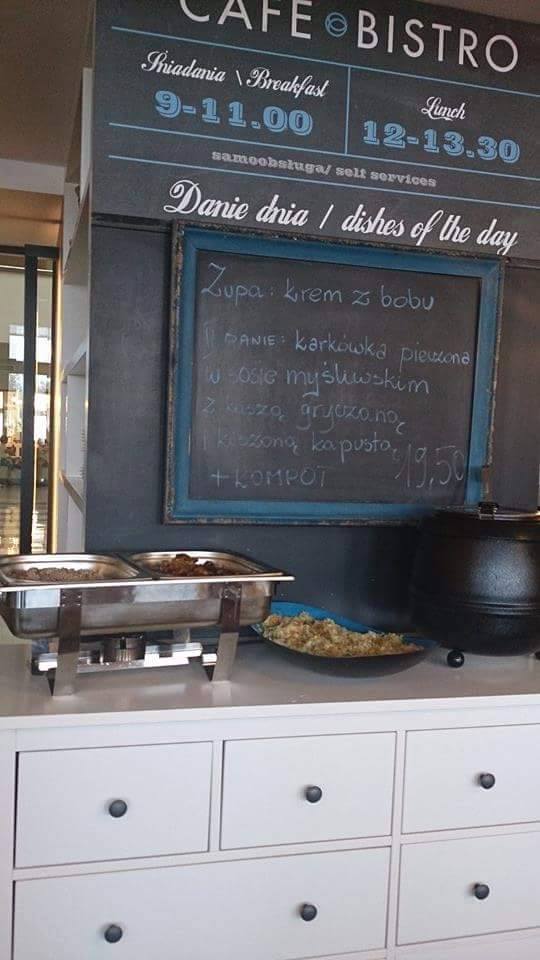 CAFE BISTRO
Śniadania \ Breakfast
9-11.00
Lunch
12-13.30
samoobsługa/ self services
Danie dnia / dishes of the day
Zupa: krem z bobu
II DANIE: karkówka pieczona
w sosie myśliwskim
z kaszą gryczaną
i kiszoną kapustą 19,50
+ KOMPOT